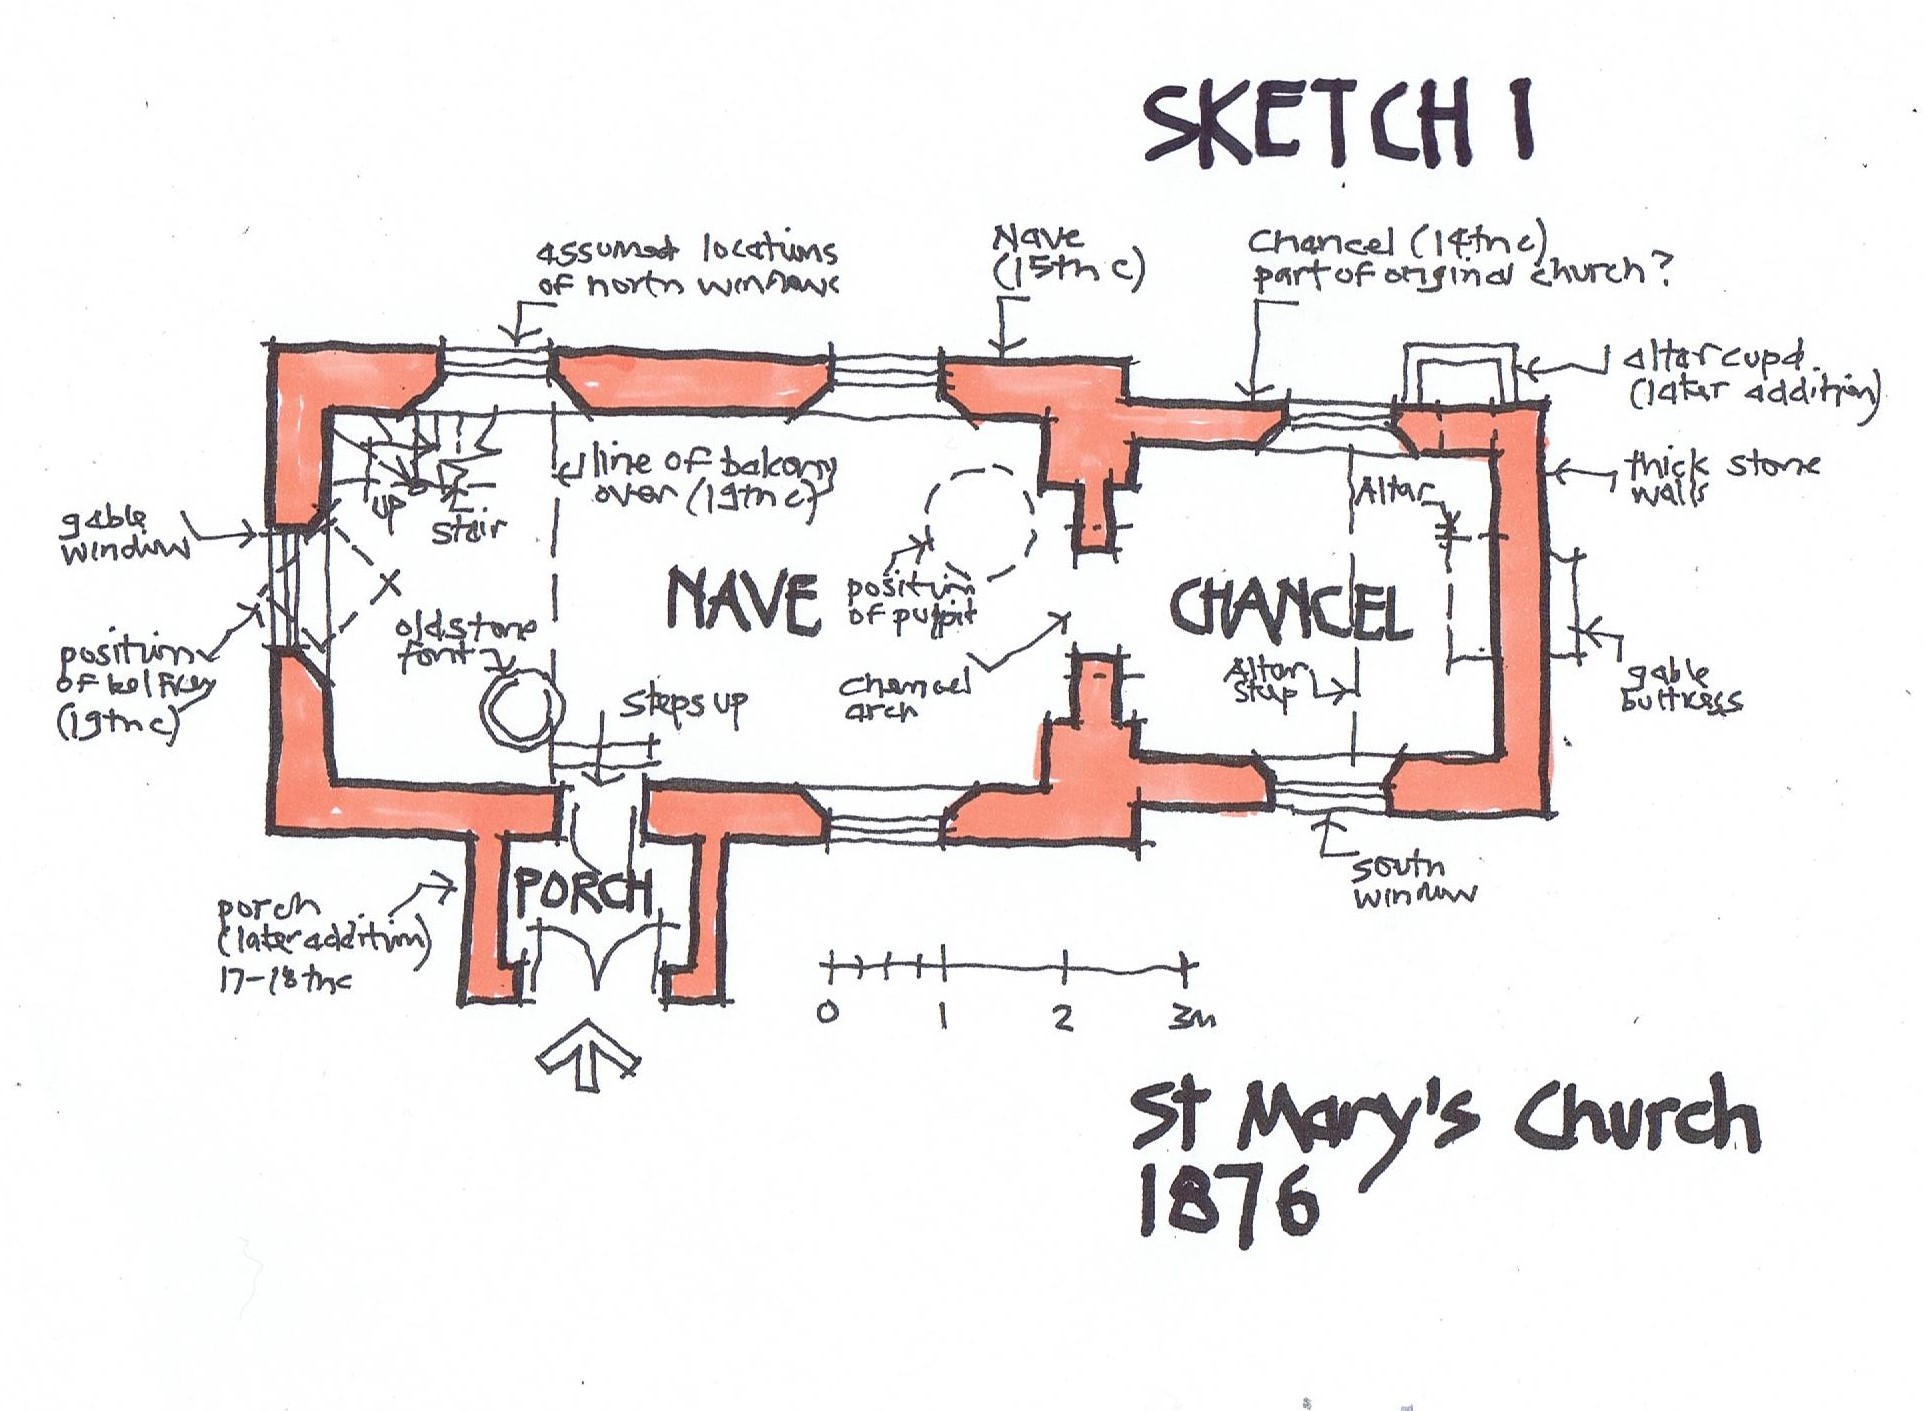 SKETCH 1
assumed locations
of north windows
Nave
(15th c)
Chancel (14th c)
part of original church?
altar cupd.
(later addition)
thick stone
walls
line of balcony
over (19th c)
UP
stair
Altar
gable
window
NAVE
position
of pulpit
CHANCEL
old stone
font
position
of belfry
(19th c)
steps up
chancel
arch
Altar
step
gable
buttress
PORCH
porch
(later addition)
17-18thc
south
window
0 1 2 3m
St Mary's Church
1876